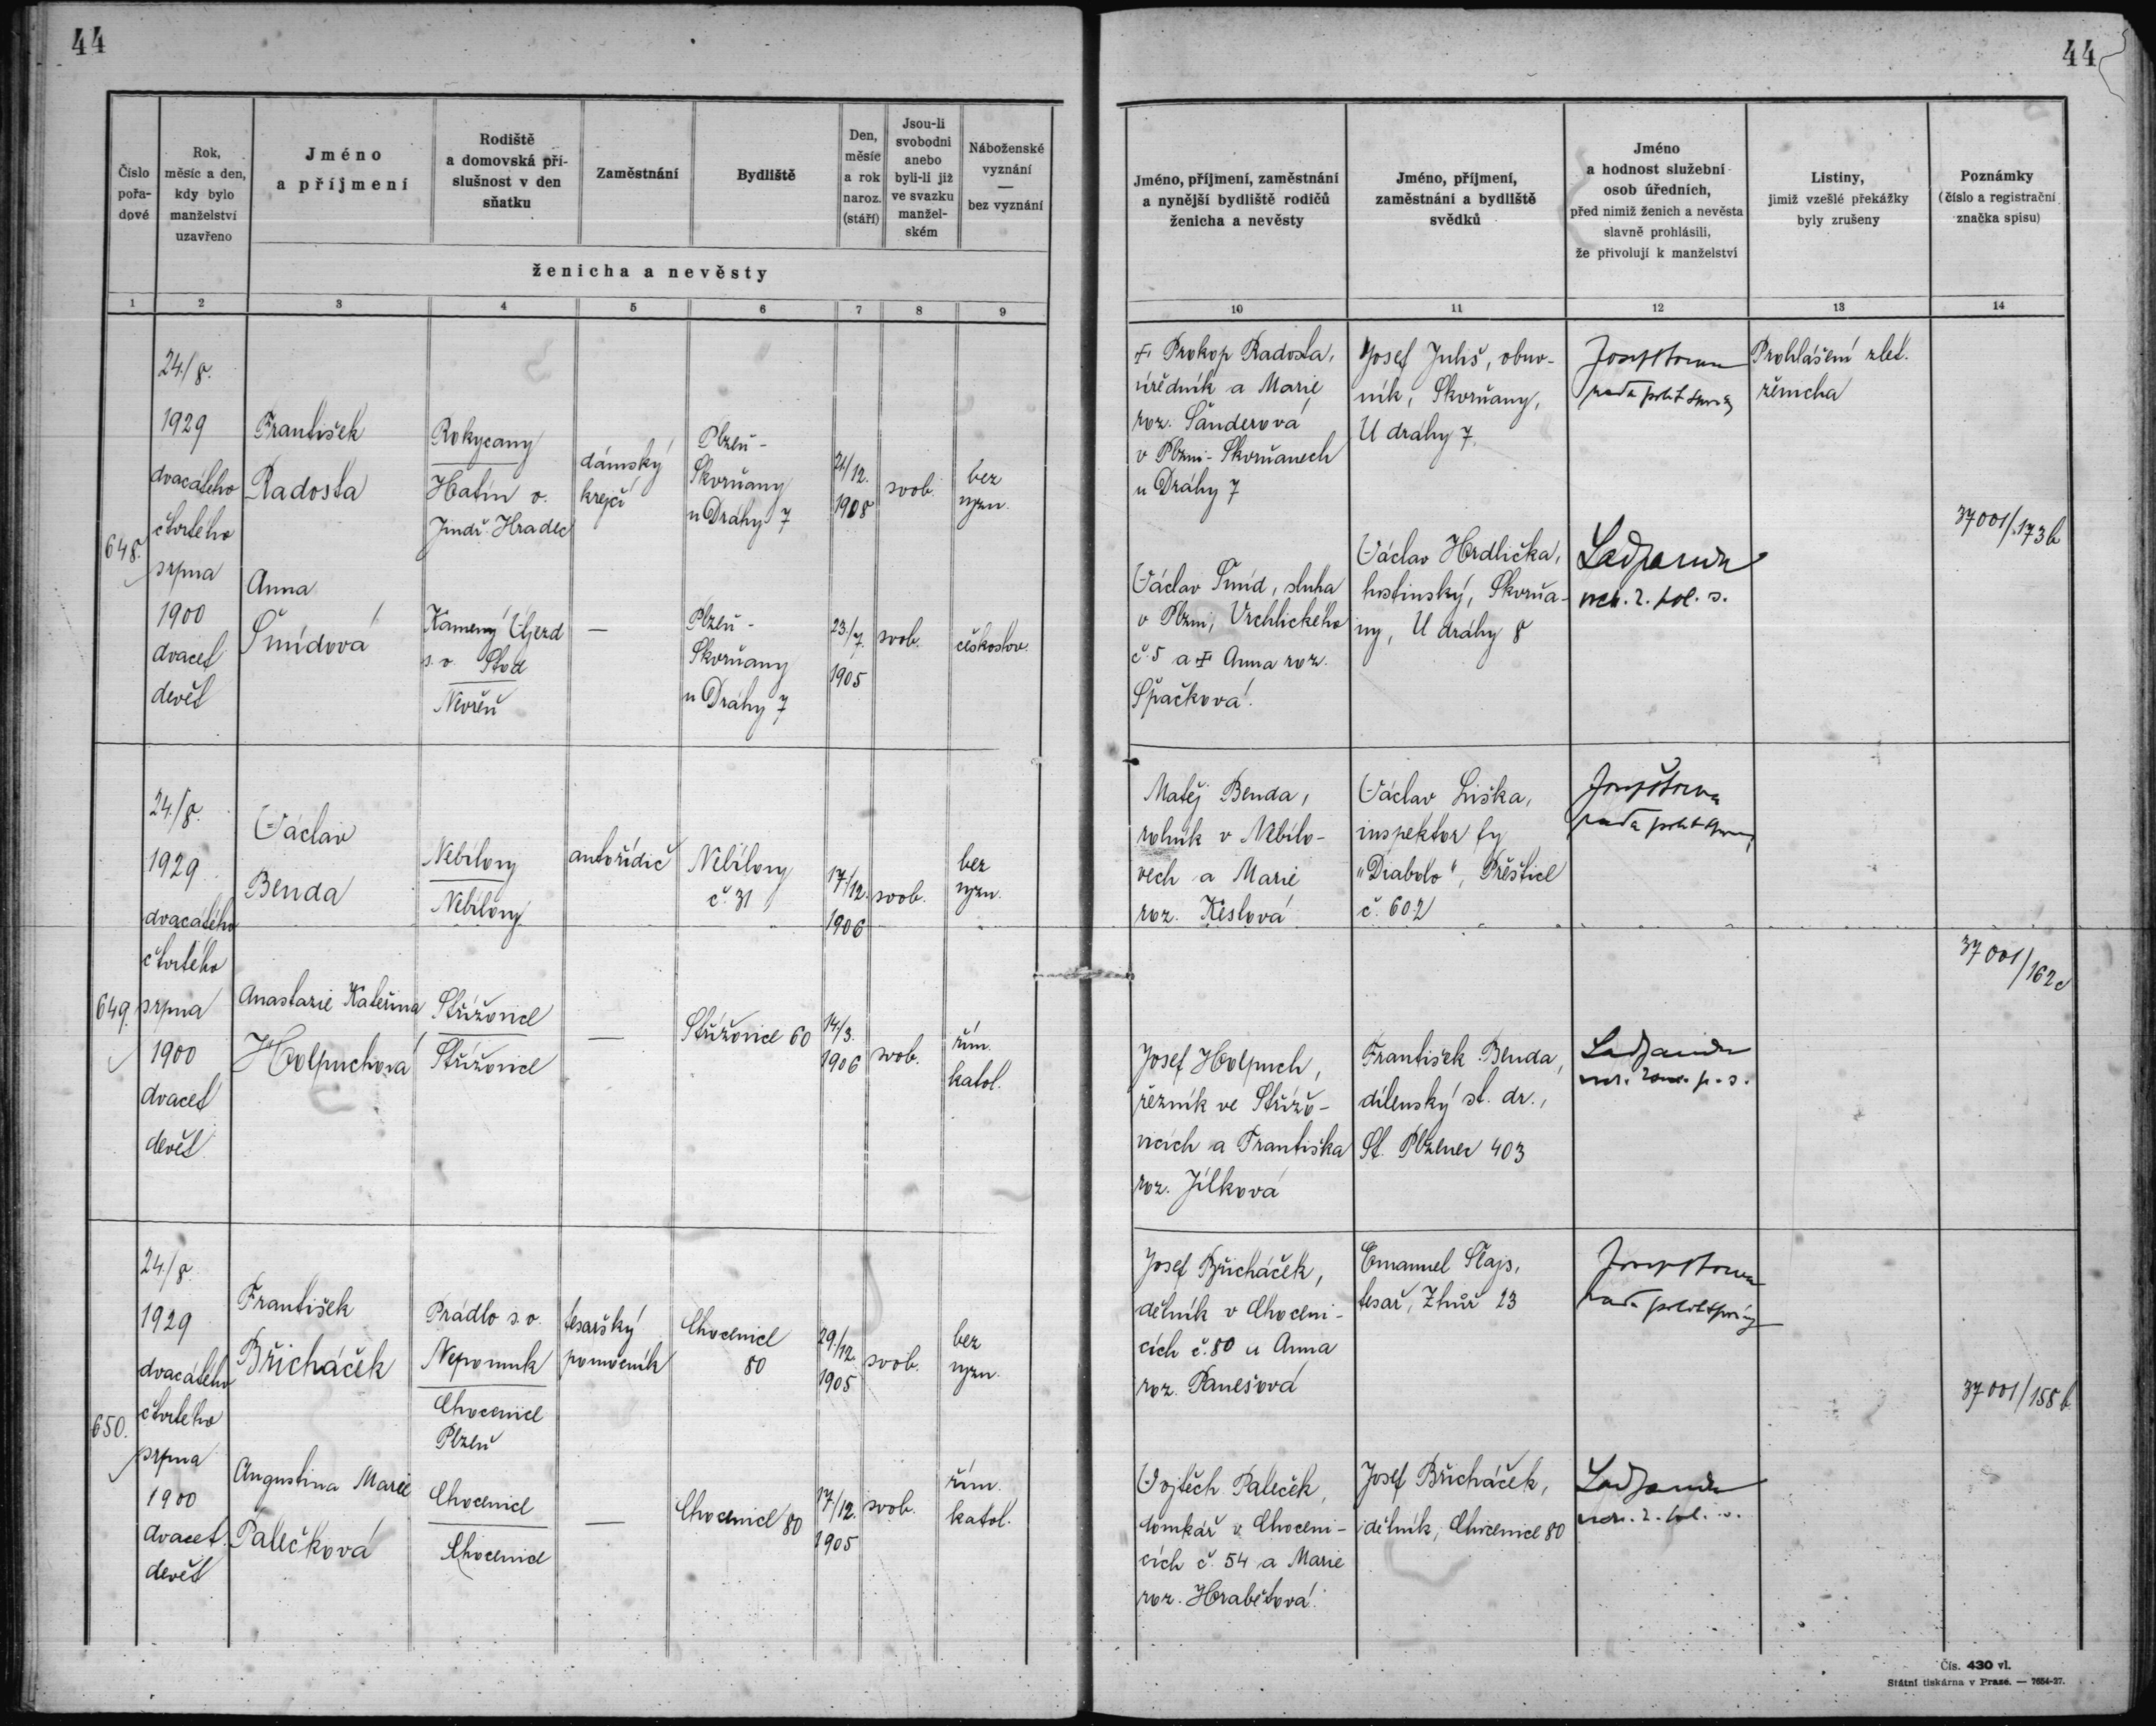 44
44
Číslo
pořa-
dové
Rok,
měsíc a den,
kdy bylo
manželství
uzavřeno
Jméno
a příjmení
Rodiště
a domovská pří-
slušnost v den
sňatku
Zaměstnání
Bydliště
Den,
měsíc
a rok
naroz.
(stáří)
Jsou-li
svobodni
anebo
byli-li již
ve svazku
manžel-
ském
Náboženské
vyznání
—
bez vyznání
ženicha a nevěsty
Jméno, příjmení, zaměstnání
a nynější bydliště rodičů
ženicha a nevěsty
Jméno, příjmení,
zaměstnání a bydliště
svědků
Jméno
a hodnost služební
osob úředních,
před nimiž ženich a nevěsta
slavně prohlásili,
že přivolují k manželství
Listiny,
jimiž vzešlé překážky
byly zrušeny
Poznámky
(číslo a registrační
značka spisu)
1 2 3 4 5 6 7 8 9 10 11 12 13 14
648.
24./8.
1929
dvacátého
čtvrtého
srpna
1900
dvacet
devět
František
Radosta
Rokycany
Hatín o.
Jindř. Hradec
dámský
krejčí
Plzeň-
Skvrňany
u Dráhy 7
24/12.
1908
svob.
bez
vyzn.
Anna
Šmídová
Kamený Újezd
s. o. Stod
Nevřeň
—
Plzeň-
Skvrňany
u Dráhy 7
23./7.
1905
svob.
českoslov.
✝ Prokop Radosta,
úředník a Marie
roz. Šanderová
v Plzni-Skvrňanech
u Dráhy 7
Václav Šmíd, sluha
v Plzni, Vrchlického
č. 5 a ✝ Anna roz.
Špačková.
Josef Juhš, obuv-
ník, Skvrňany,
U dráhy 7.
Václav Hrdlička,
hostinský, Skvrňa-
ny, U dráhy 8
rada polit. správy
Prohlášení zlet.
ženicha
37001/173b
649.
24./8.
1929
dvacátého
čtvrtého
srpna
1900
dvacet
devět
Václav
Benda
Nebílovy
Nebílovy
autořidič
Nebílovy
č. 31
17/12.
1906
svob.
bez
vyzn.
Anastazie Kateřina
Holpuchová
Střížovice
Střížovice
—
Střížovice 60
14/3.
1906
svob.
řím.
katol.
Matěj Benda,
rolník v Nebílo-
vech a Marie
roz. Keslová
Josef Holpuch,
řezník ve Střížo-
vicích a Františka
roz. Jílková
Václav Liška,
inspektor fy
"Diabolo", Přeštice
č. 602
František Benda,
dílenský st. dr.,
St. Plzenec 403
rada polit. správy
37001/162c
650.
24./8.
1929
dvacátého
čtvrtého
srpna
1900
dvacet
devět
František
Břicháček
Prádlo s. o.
Nepomuk
Chocenice
Plzeň
tesařský
pomocník
Chocenice
80
29./12.
1905
svob.
bez
vyzn.
Augustina Marie
Palečková
Chocenice
Chocenice
—
Chocenice 80
17/12.
1905
svob.
řím.
katol.
Josef Břicháček,
dělník v Choceni-
cích č. 80 a Anna
roz. Panešová
Vojtěch Paleček,
domkář v Choceni-
cích č. 54 a Marie
roz. Hrabětová.
Emanuel Šlajs,
tesař, Zhůř 23
Josef Břicháček,
dělník, Chocenice 80
rada polit. správy
37001/158b
Čís. 430 vl.
Státní tiskárna v Praze. — 7654-27.